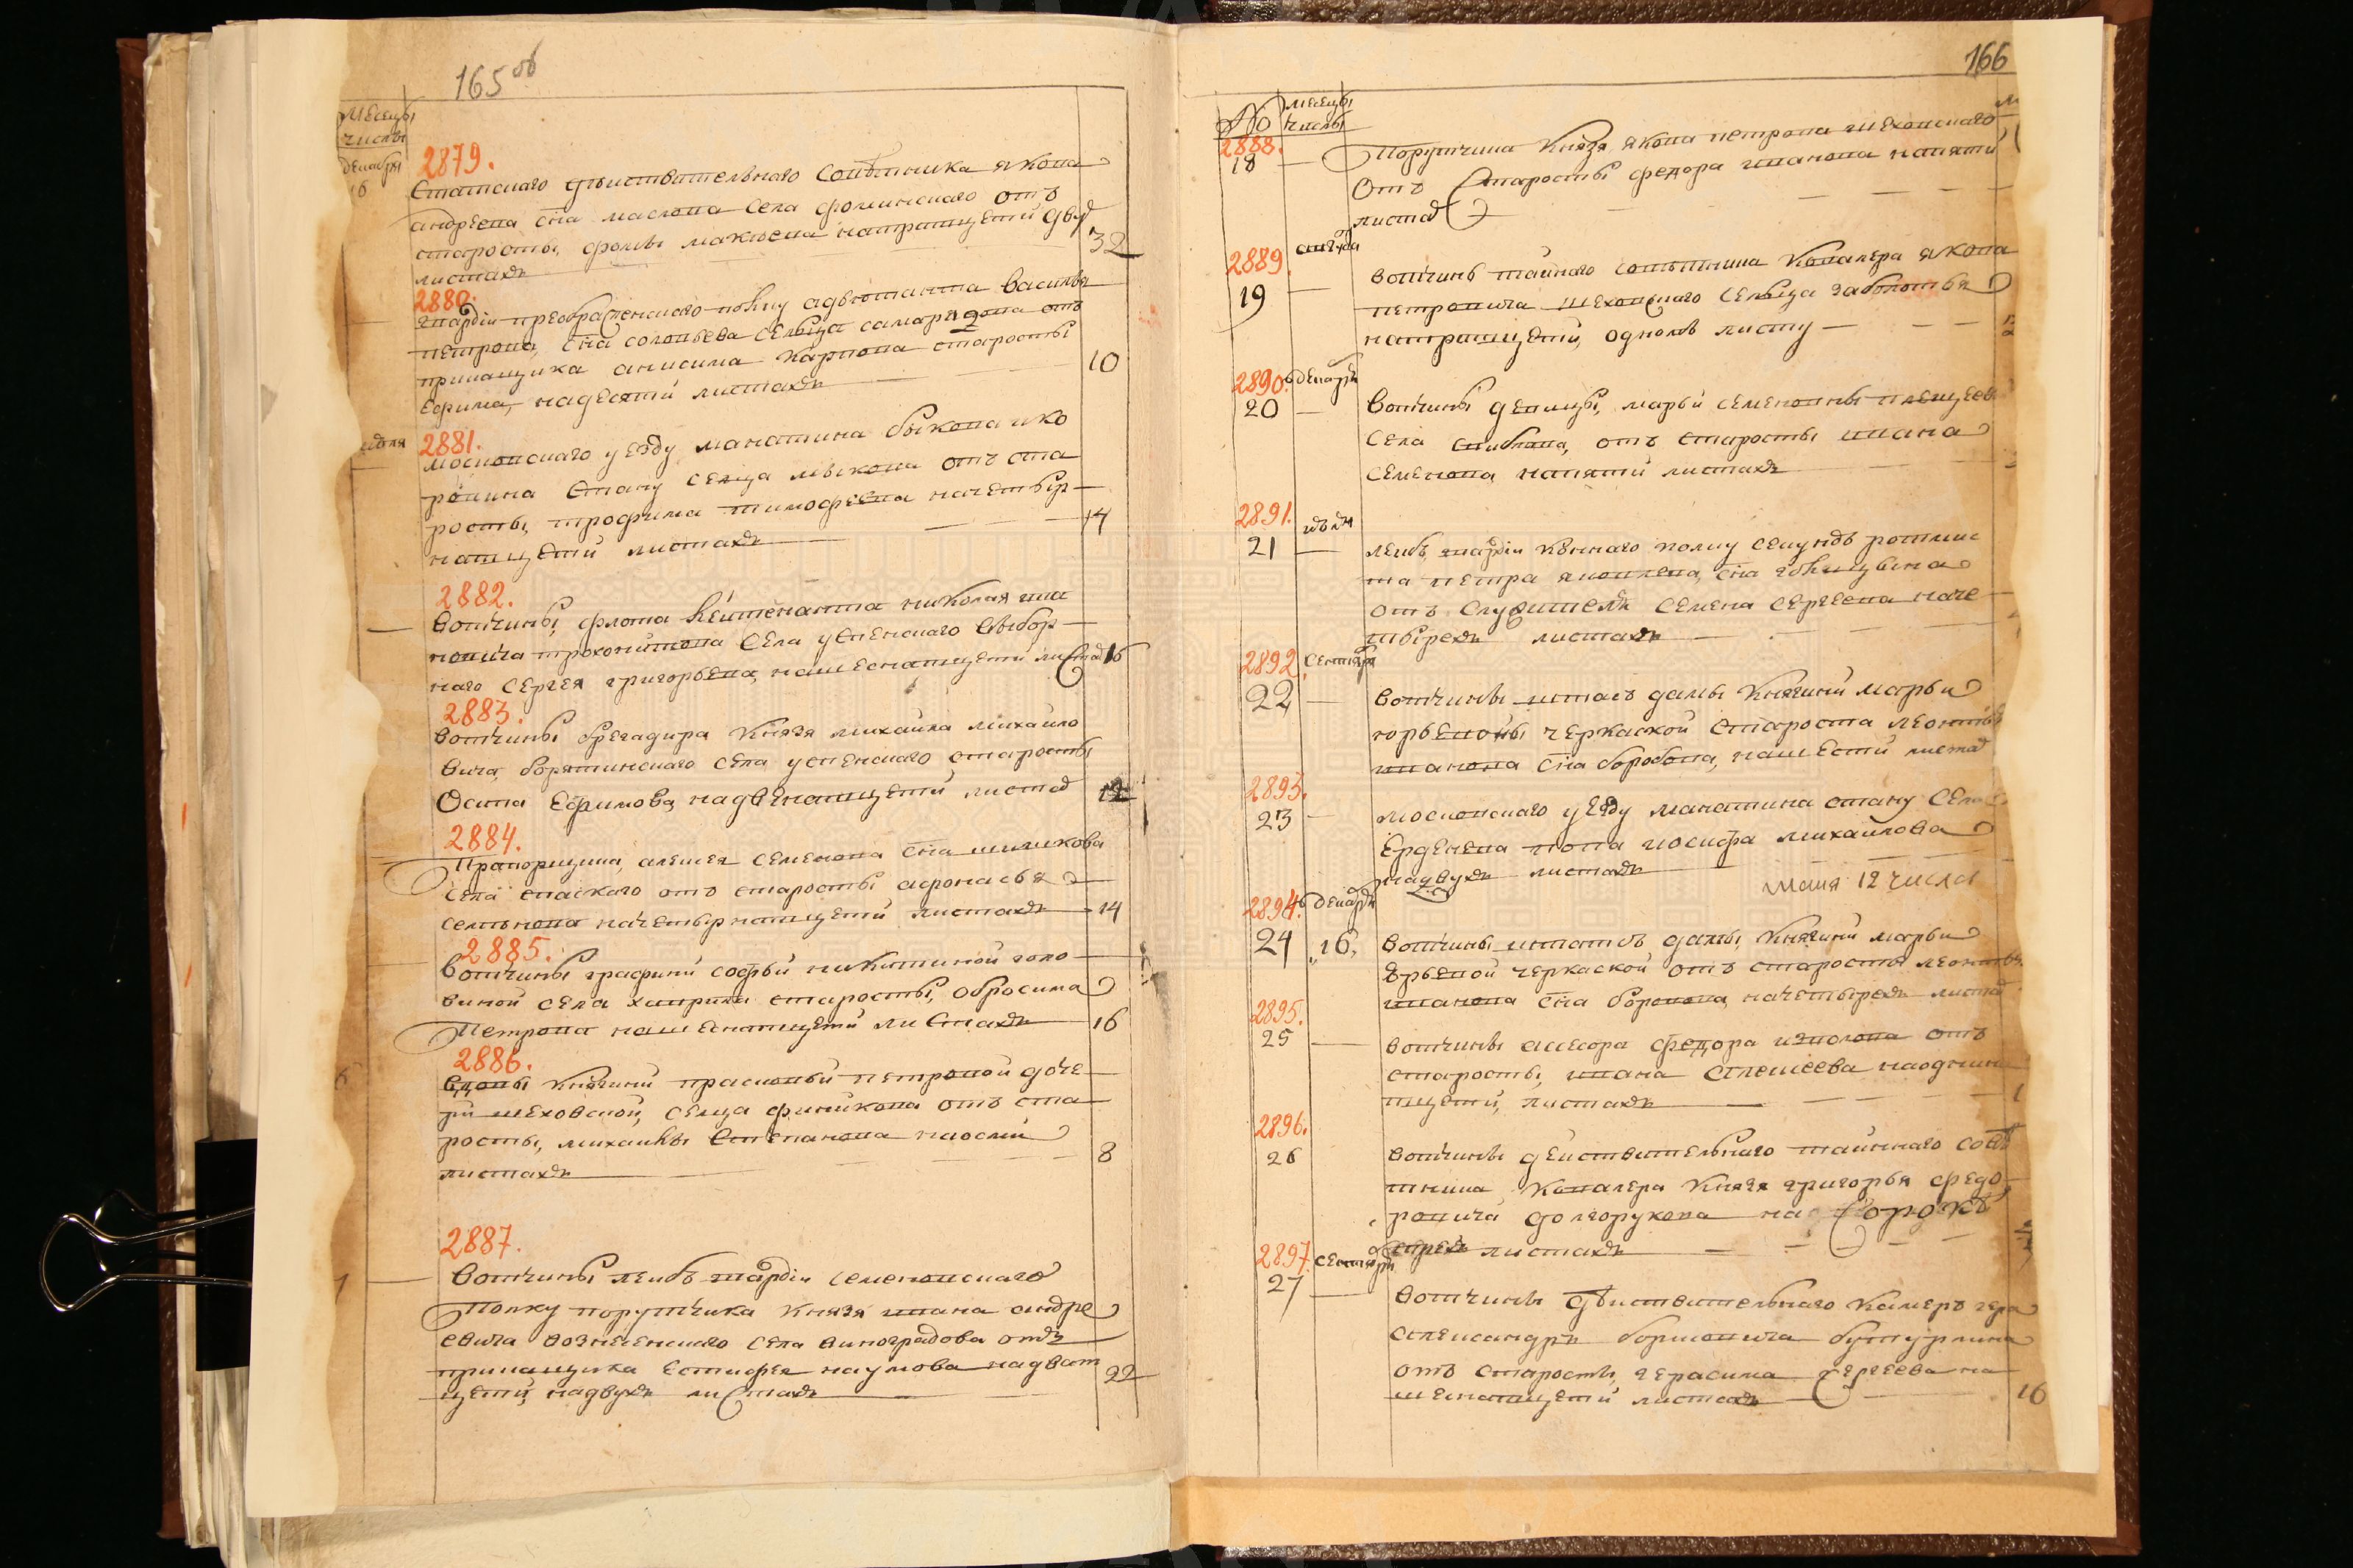 165 об
Месецы
числы
декабря
16
2879.
Статского действительного советника якова
андреева сна маслова села фоминского отъ
старосты, фомы макѣева натритцети двух
листахъ
32
2880.
гвардіи преображенского полку адьютанта василья
петрова, сна соловьева сельца
прикащика анисима карпова старосты
ефима, надесяти листахъ
10
июля
2881.
московского уезду манатина быкова и ко
ровина стану селца лысково отъ ста
росты, трофима тимофеева начетыр
натцети листахъ
14
2882.
вотчины, флота лѣитенанта николая ива
новича села успенского выбор
наго сергея григорьева, нашеснатцети листах
16
2883.
вотчины брегадира князя михаила михайло
вича, борятинского села успенского старосты
Осипа Ефимова, надвенатцети листах
12
2884.
Прапорщика, алексея семенова сна шишкова
села спаского отъ старосты афонасья
селиванова начетырнатцети листахъ
14
2885.
вотчины графини софьи никитиной голо
виной села старосты, обросима
Петрова нашеснатцети листахъ
16
2886.
вдовы княгини прасковьи петровой доче
ри шеховской, селца финикова отъ ста
росты, михаилы степанова наосми
листахъ
8
2887.
Вотчины леибъ гвардіи семеновского
Полку порутчика князя ивана андре
евича вознесенского села виноградова отъ
прикащика Естифея наумова надват
цети, надвухъ листахъ
22
166
No
месецы
числы
2888.
18
Порутчика князя якова петрова шеховского
Отъ Старосты федора иванова напяти
листах
2889.
19
вотчины таиного советника ковалера якова
петровича шеховского сельца заболотья
натритцети, одномъ листу
2890.
декабря
20
вотчины девицы, марьи семеновны плещеев
села отъ старосты ивана
семенова напяти листахъ
2891.
июля
21
леибъ, гвардіи конного полку секундъ ротмис
тра петра яковлева, сна
отъ служителя семена сергеева наче
тырехъ листахъ
2892.
сентября
22
вотчины штатъ дамы княгини марьи
юрьевоны черкаской староста леонтья
иванова сна боробова, нашести листах
2893.
23
московского уезду манатина стану села
Ерденева попа иосифа михаилова
надвухъ листахъ
маия 12 числа
2894.
декабря
24
16
вотчины штатсъ дамы, княгини марьи
юрьевой черкаской отъ старосты леонтья
иванова сна боровова, начетырехъ листах
2895.
25
вотчины асесора федора отъ
старосты, ивана алексеева наодинна
тцети, листахъ
2896.
26
вотчины действительного таинного сове
тника ковалера князя григорья федо
ровича долгорукова на сорокъ
трехъ листахъ
2897.
сентября
27
вотчины действительного камеръ гера
александръ борисовича бутурлина
отъ старосты, герасима сергеева на
шеснатцети листахъ
16